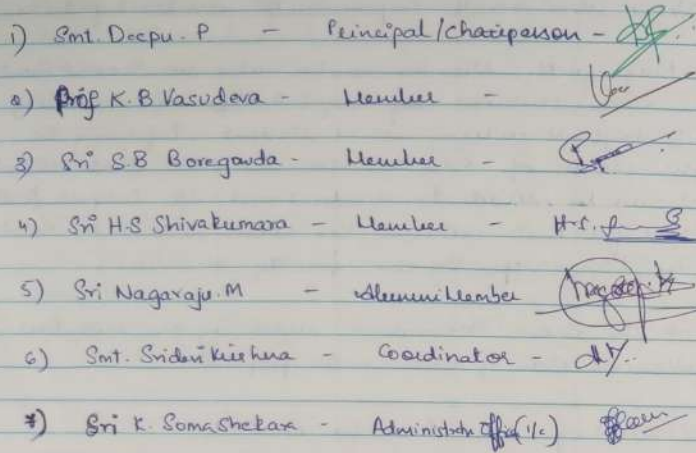 1) Smt. Deepu. P - Principal/chairperson -
2) Prof K. B Vasudeva - Member -
3) Sri S.B Boregowda - Member -
4) Sri H.S Shivakumara - Member - H.S.
5) Sri Nagaraju. M - Alumni Member
6) Smt. Sridevi Krishna - Coordinator -
7) Sri K. Somashekara - Administrative Officer (I/c)